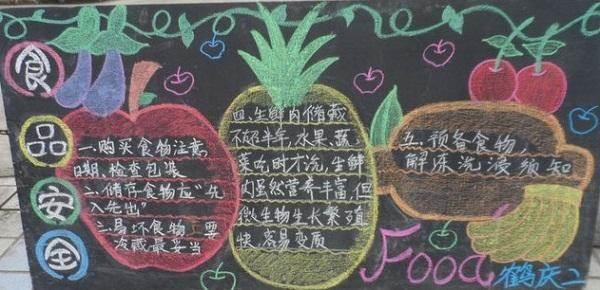 食
品
安
全
一.购买食物注意
日期,检查包装
二.储存食物应“先
入先出”
三.易坏食物一要
冷藏最妥当
四.生鲜肉储藏
不超半年,水果、蔬
菜吃时才洗,生鲜
肉虽然营养丰富,但
微生物生长繁殖
快,容易变质
五.预备食物,
解冻洗漫须知
Food
鹤庆二